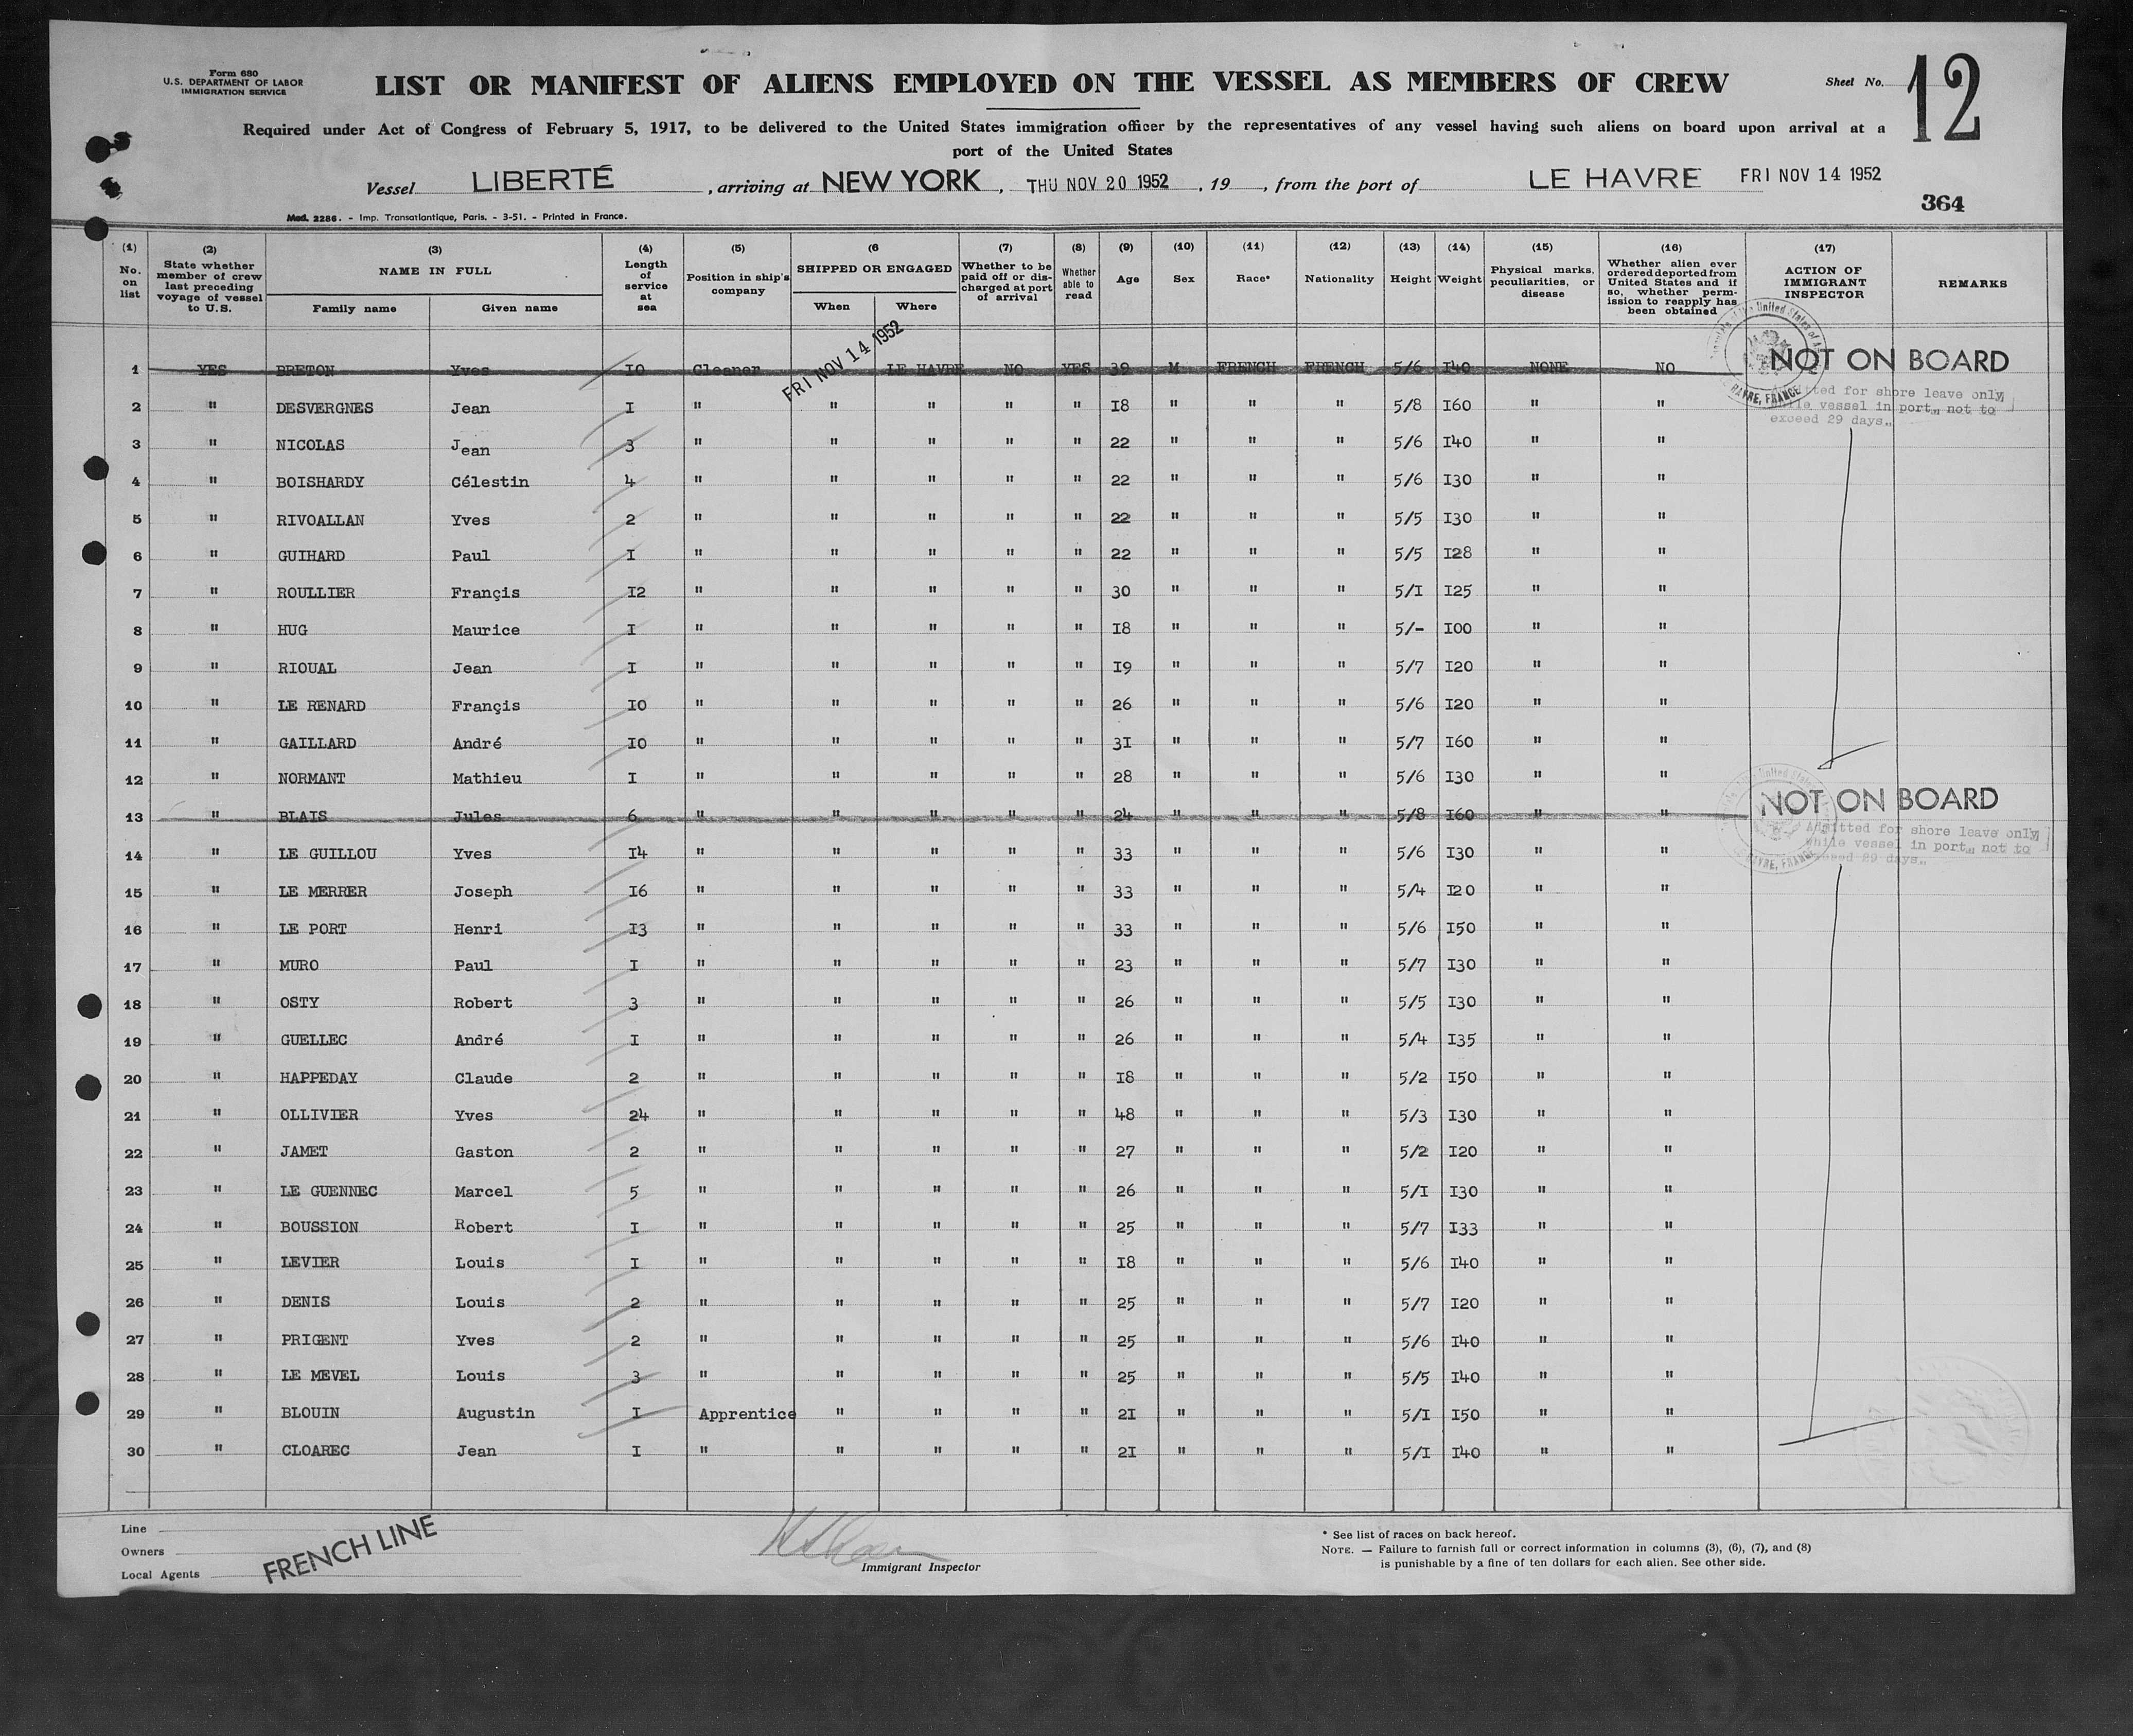 Form 680
U.S. DEPARTMENT OF LABOR
IMMIGRATION SERVICE
LIST OR MANIFEST OF ALIENS EMPLOYED ON THE VESSEL AS MEMBERS OF CREW
Sheet No. 12
Required under Act of Congress of February 5, 1917, to be delivered to the United States immigration officer by the representatives of any vessel having such aliens on board upon arrival at a
port of the United States
Vessel LIBERTÉ, arriving at NEW YORK, THU NOV 20 1952, 19, from the port of LE HAVRE FRI NOV 14 1952
364
Mod. 2286. - Imp. Transatlantique, Paris. - 3-51. - Printed in France.
(1) No. on list
(2) State whether member of crew last preceding voyage of vessel to U.S.
(3) NAME IN FULL Family name Given name
(4) Length of service at sea
(5) Position in ship's company
(6 SHIPPED OR ENGAGED When Where
(7) Whether to be paid off or discharged at port of arrival
(8) Whether able to read
(9) Age
(10) Sex
(11) Race*
(12) Nationality
(13) Height
(14) Weight
(15) Physical marks, peculiarities, or disease
(16) Whether alien ever ordered deported from United States and if so, whether permission to reapply has been obtained
(17) ACTION OF IMMIGRANT INSPECTOR
REMARKS
1 YES BRETON Yves 10 Cleaner FRI NOV 14 1952 LE HAVRE NO YES 39 M FRENCH FRENCH 5/6 I40 NONE NO NOT ON BOARD
2 " DESVERGNES Jean I " " " " " I8 " " " 5/8 I60 " " Admitted for shore leave only while vessel in port, not to exceed 29 days.
3 " NICOLAS Jean 3 " " " " " 22 " " " 5/6 I40 " "
4 " BOISHARDY Célestin 4 " " " " " 22 " " " 5/6 I30 " "
5 " RIVOALLAN Yves 2 " " " " " 22 " " " 5/5 I30 " "
6 " GUIHARD Paul I " " " " " 22 " " " 5/5 I28 " "
7 " ROULLIER Françis I2 " " " " " 30 " " " 5/I I25 " "
8 " HUG Maurice I " " " " " I8 " " " 5/- I00 " "
9 " RIOUAL Jean I " " " " " I9 " " " 5/7 I20 " "
10 " LE RENARD Françis I0 " " " " " 26 " " " 5/6 I20 " "
11 " GAILLARD André I0 " " " " " 3I " " " 5/7 I60 " "
12 " NORMANT Mathieu I " " " " " 28 " " " 5/6 I30 " "
13 " BLAIS Jules 6 " " " " " 24 " " " 5/8 I60 " " NOT ON BOARD
14 " LE GUILLOU Yves I4 " " " " " 33 " " " 5/6 I30 " " Admitted for shore leave only while vessel in port, not to exceed 29 days.
15 " LE MERRER Joseph I6 " " " " " 33 " " " 5/4 I20 " "
16 " LE PORT Henri I3 " " " " " 33 " " " 5/6 I50 " "
17 " MURO Paul I " " " " " 23 " " " 5/7 I30 " "
18 " OSTY Robert 3 " " " " " 26 " " " 5/5 I30 " "
19 " GUELLEC André I " " " " " 26 " " " 5/4 I35 " "
20 " HAPPEDAY Claude 2 " " " " " I8 " " " 5/2 I50 " "
21 " OLLIVIER Yves 24 " " " " " 48 " " " 5/3 I30 " "
22 " JAMET Gaston 2 " " " " " 27 " " " 5/2 I20 " "
23 " LE GUENNEC Marcel 5 " " " " " 26 " " " 5/I I30 " "
24 " BOUSSION Robert I " " " " " 25 " " " 5/7 I33 " "
25 " LEVIER Louis I " " " " " I8 " " " 5/6 I40 " "
26 " DENIS Louis 2 " " " " " 25 " " " 5/7 I20 " "
27 " PRIGENT Yves 2 " " " " " 25 " " " 5/6 I40 " "
28 " LE MEVEL Louis 3 " " " " " 25 " " " 5/5 I40 " "
29 " BLOUIN Augustin I Apprentice " " " " 2I " " " 5/I I50 " "
30 " CLOAREC Jean I " " " " " 2I " " " 5/I I40 " "
Line
Owners
Local Agents
FRENCH LINE
Immigrant Inspector
* See list of races on back hereof.
NOTE. — Failure to furnish full or correct information in columns (3), (6), (7), and (8)
is punishable by a fine of ten dollars for each alien. See other side.